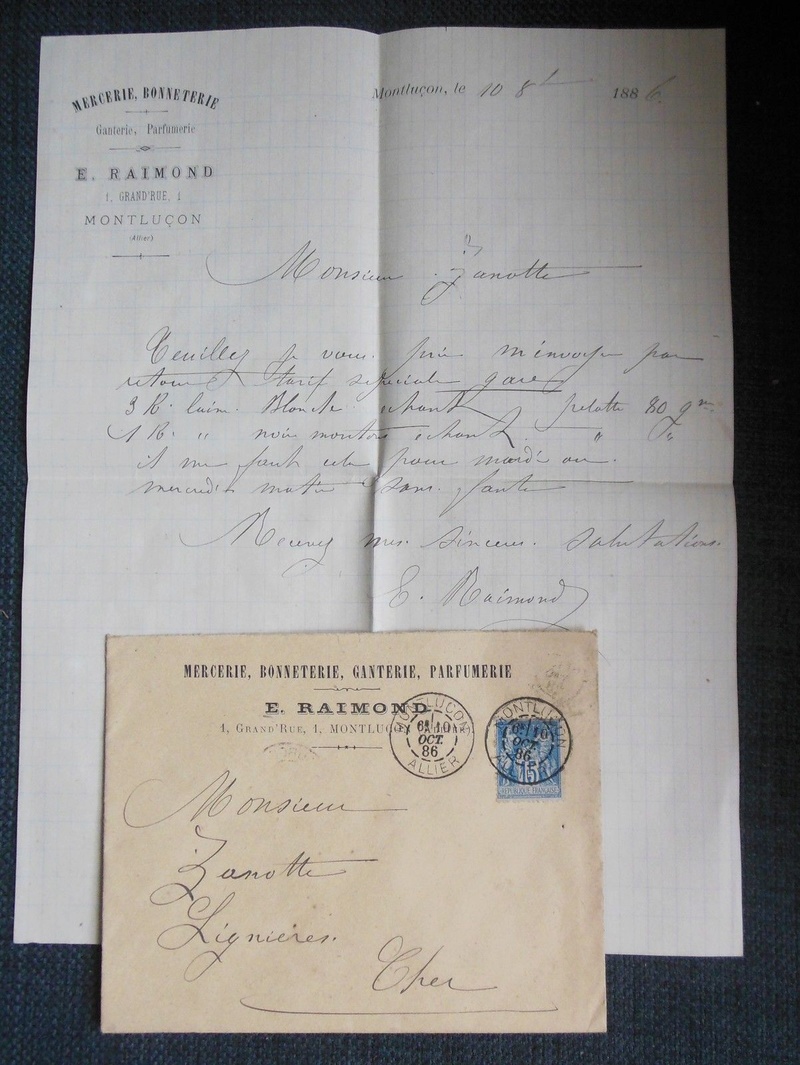 MERCERIE, BONNETERIE
Ganterie, Parfumerie
E. RAIMOND
1, GRAND'RUE, 1
MONTLUÇON
(Allier)
Montluçon, le 10 8bre 1886
Monsieur Zanotte
Veuillez je vous prie m'envoyer par
retour tarif spéciale gare
3 K. laine Blanche échant pelotte 80 gr
1 K. " noir mouton échant " "
il me faut cela pour mardi ou
mercredi matin sans faute
Recevez mes sincères salutations.
E. Raimond
MERCERIE, BONNETERIE, GANTERIE, PARFUMERIE
E. RAIMOND
1, GRAND'RUE, 1, MONTLUÇON
MONTLUCON
6E/10
OCT.
86
ALLIER
MONTLUCON
6E/10
OCT.
86
15
REPUBLIQUE FRANÇAISE
Monsieur
Zanotte
Lignières.
Cher